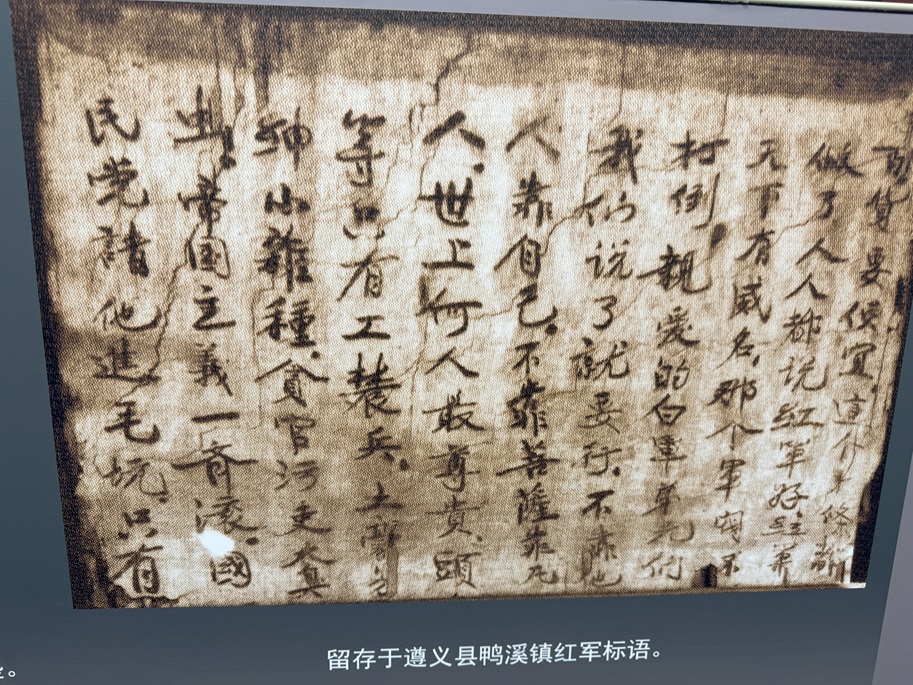 百货要便宜，這个事條都
做了人人都说红军好，红軍
天下有威名，那个軍阀不
打倒親爱的白軍弟兄们
我们说了就要行，不靠他
人靠自己，不靠菩薩靠凡
人，世上何人最尊贵，頭
等只有工農兵，土豪劣
紳小雜種，貪官污吏大臭
虫，帝国主義一齊滚，國
民党請他進毛坑，只有
留存于遵义县鸭溪镇红军标语。